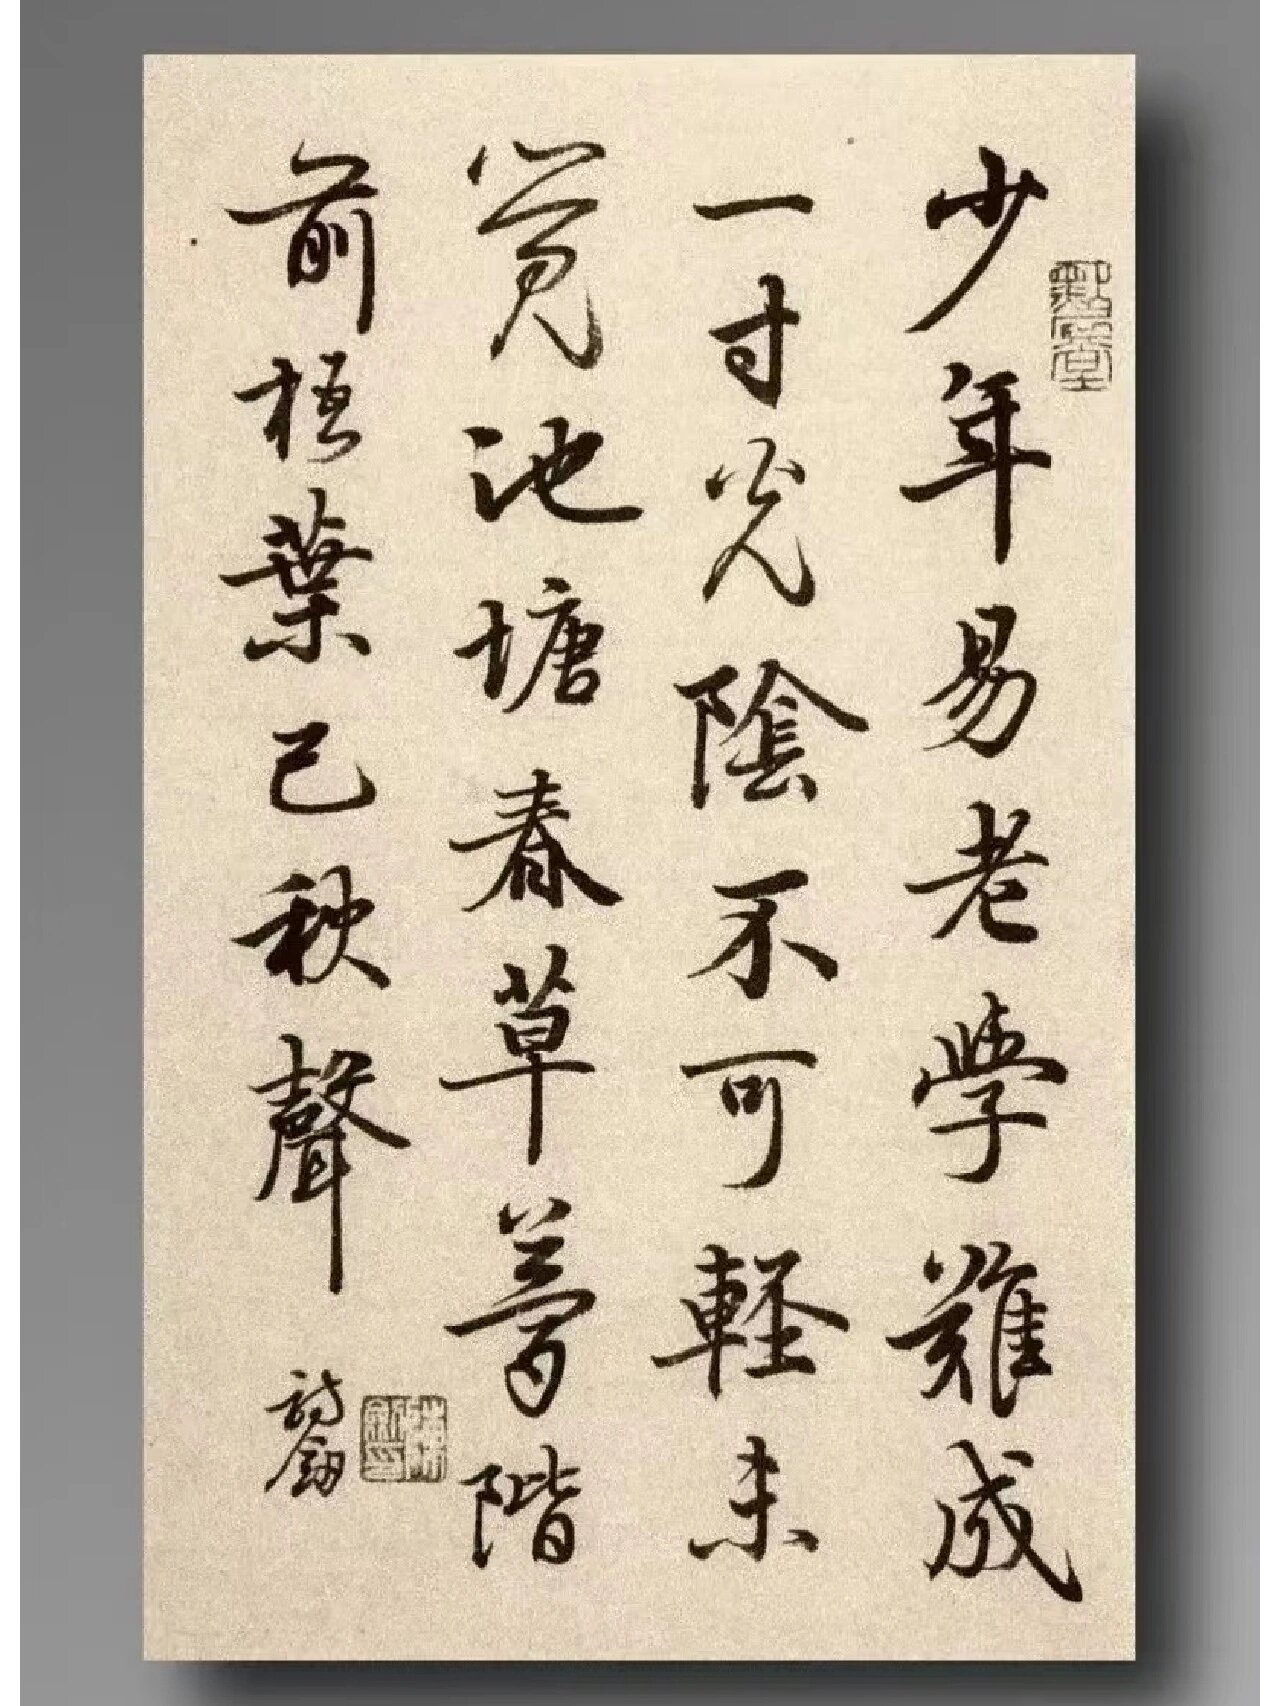 少年易老学難成
一寸光陰不可軽未
覚池塘春草夢階
前梧葉已秋聲
詩劒